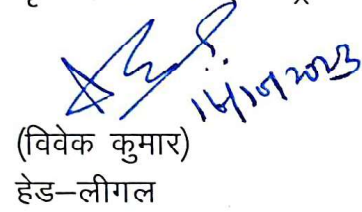 16/10/2023
(विवेक कुमार)
हेड–लीगल